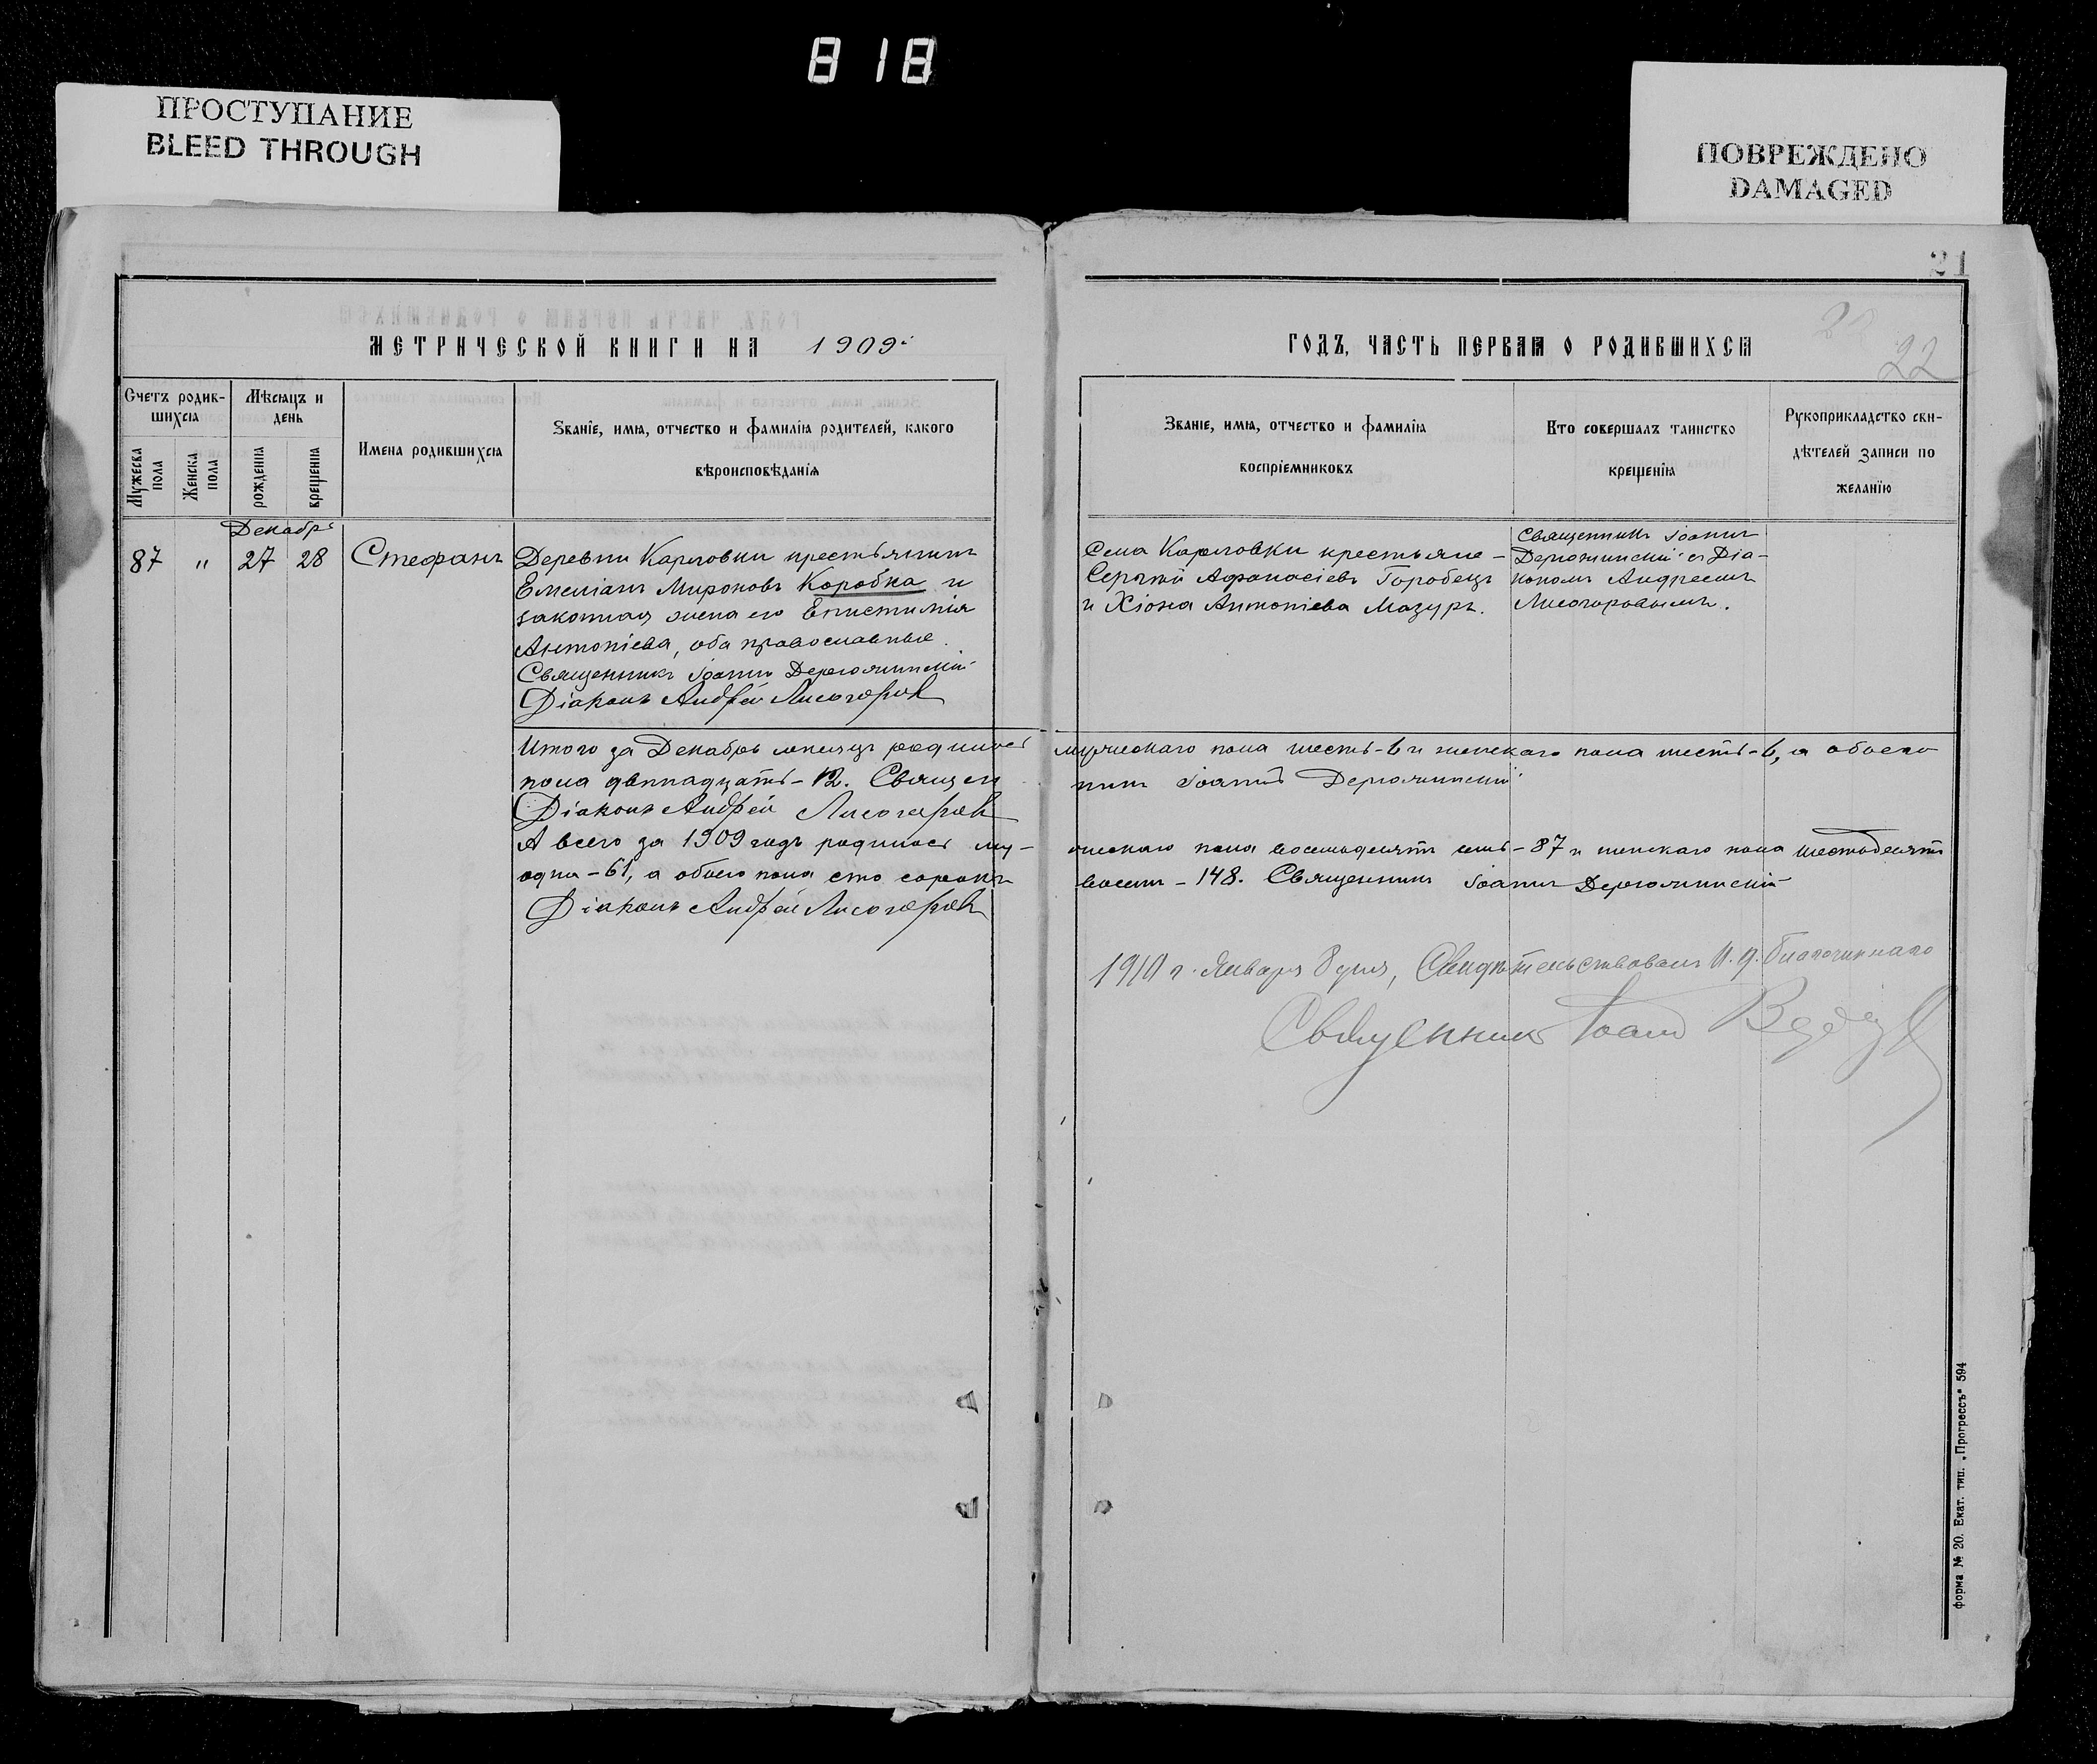 818
ПРОСТУПАНИЕ
BLEED THROUGH
ПОВРЕЖДЕНО
DAMAGED
21
22
МЕТРИЧЕСКОЙ КНИГИ НА 1909
Счетъ родив-
шихся
Мѣсяцъ и
день
Мужеска
пола
Женска
пола
рожденія
крещенія
Имена родившихся
Званіе, имя, отчество и фамилія родителей, какого
вѣроисповѣданія
Декабрь
87 " 27 28 Стефанъ
Деревни Карловки крестьянинъ
Емеліанъ Мироновъ Коробка и
законная жена его Епистимія
Антоніева, оба православные.
Священникъ Іоаннъ Держчинскій
Діаконъ Андрей Лисогоровъ
Итого за Декабрь мѣсяцъ родилось
пола двѣнадцать - 12. Священ
Діаконъ Андрей Лисогоровъ
А всего за 1909 годъ родилось му-
одна - 61, а обоего пола сто сорокъ
Діаконъ Андрей Лисогоровъ
ГОДЪ, ЧАСТЬ ПЕРВАЯ О РОДИВШИХСЯ
Званіе, имя, отчество и фамилія
воспріемниковъ
Кто совершалъ таинство
крещенія
Рукоприкладство сви-
дѣтелей записи по
желанію
Села Карловки крестьяне -
Сергѣй Афанасіевъ Горобецъ
и Хіона Антоніева Мазуръ.
Священникъ Іоаннъ
съ Діа-
кономъ Андреемъ
Лисогоровымъ.
мужескаго пола шесть - 6 и женскаго пола шесть - 6, а обоего
никъ Іоаннъ
жескаго пола восемьдесятъ семь - 87 и женскаго пола шестьдесятъ
восемь - 148. Священникъ Іоаннъ
1910 г. Января 8 дня, Свидѣтельствовалъ И. д. Благочиннаго
Священникъ Іоаннъ
форма № 20. Екат. тип. „Прогрессъ“ 594